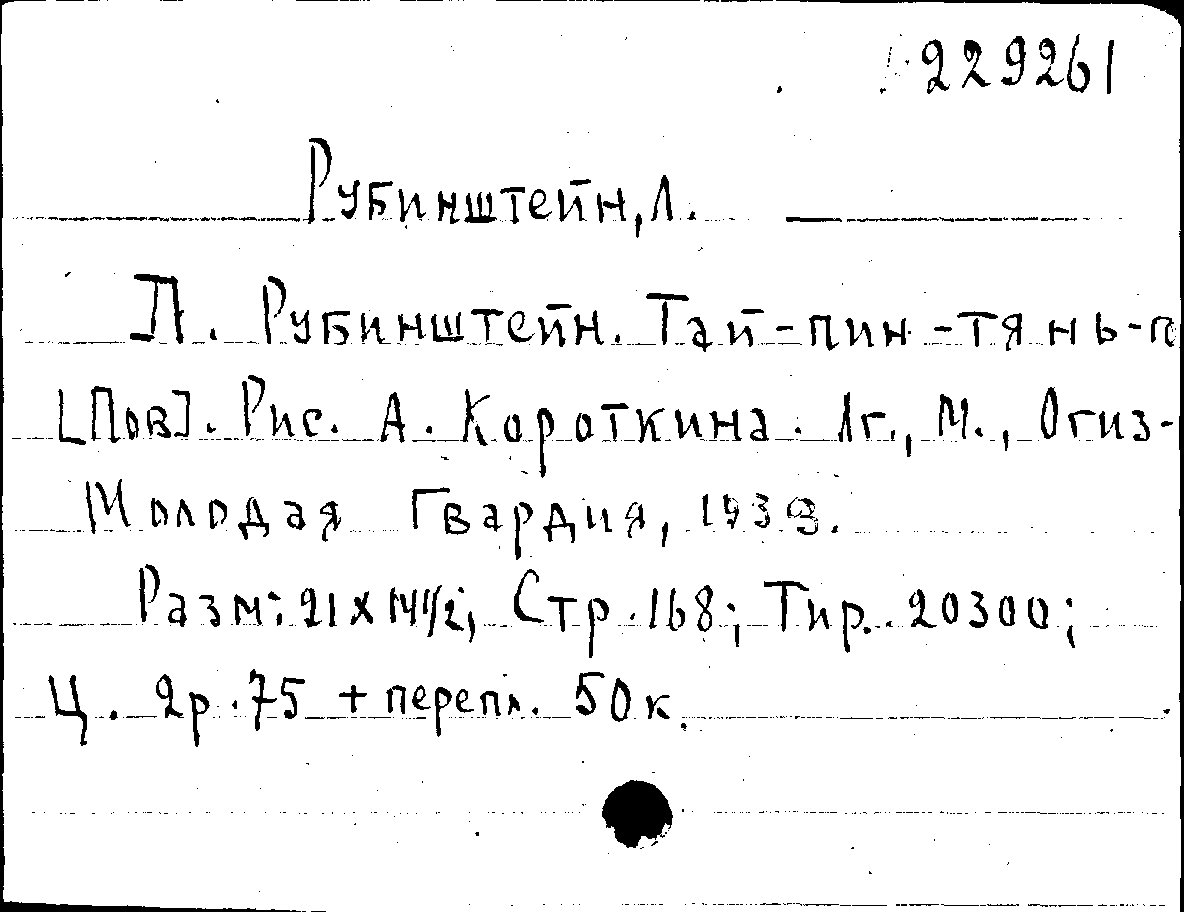 229261
Рубинштейн, Л.
Л. Рубинштейн. Тай-пин-тянь-г
[Пов]. Рис. А. Короткина. Лг., М., Огиз-
Молодая Гвардия, 1933.
Разм: 21 х 14 1/2; Стр. 168; Тир. 20300;
Ц. 2р. 75 + перепл. 50 к.